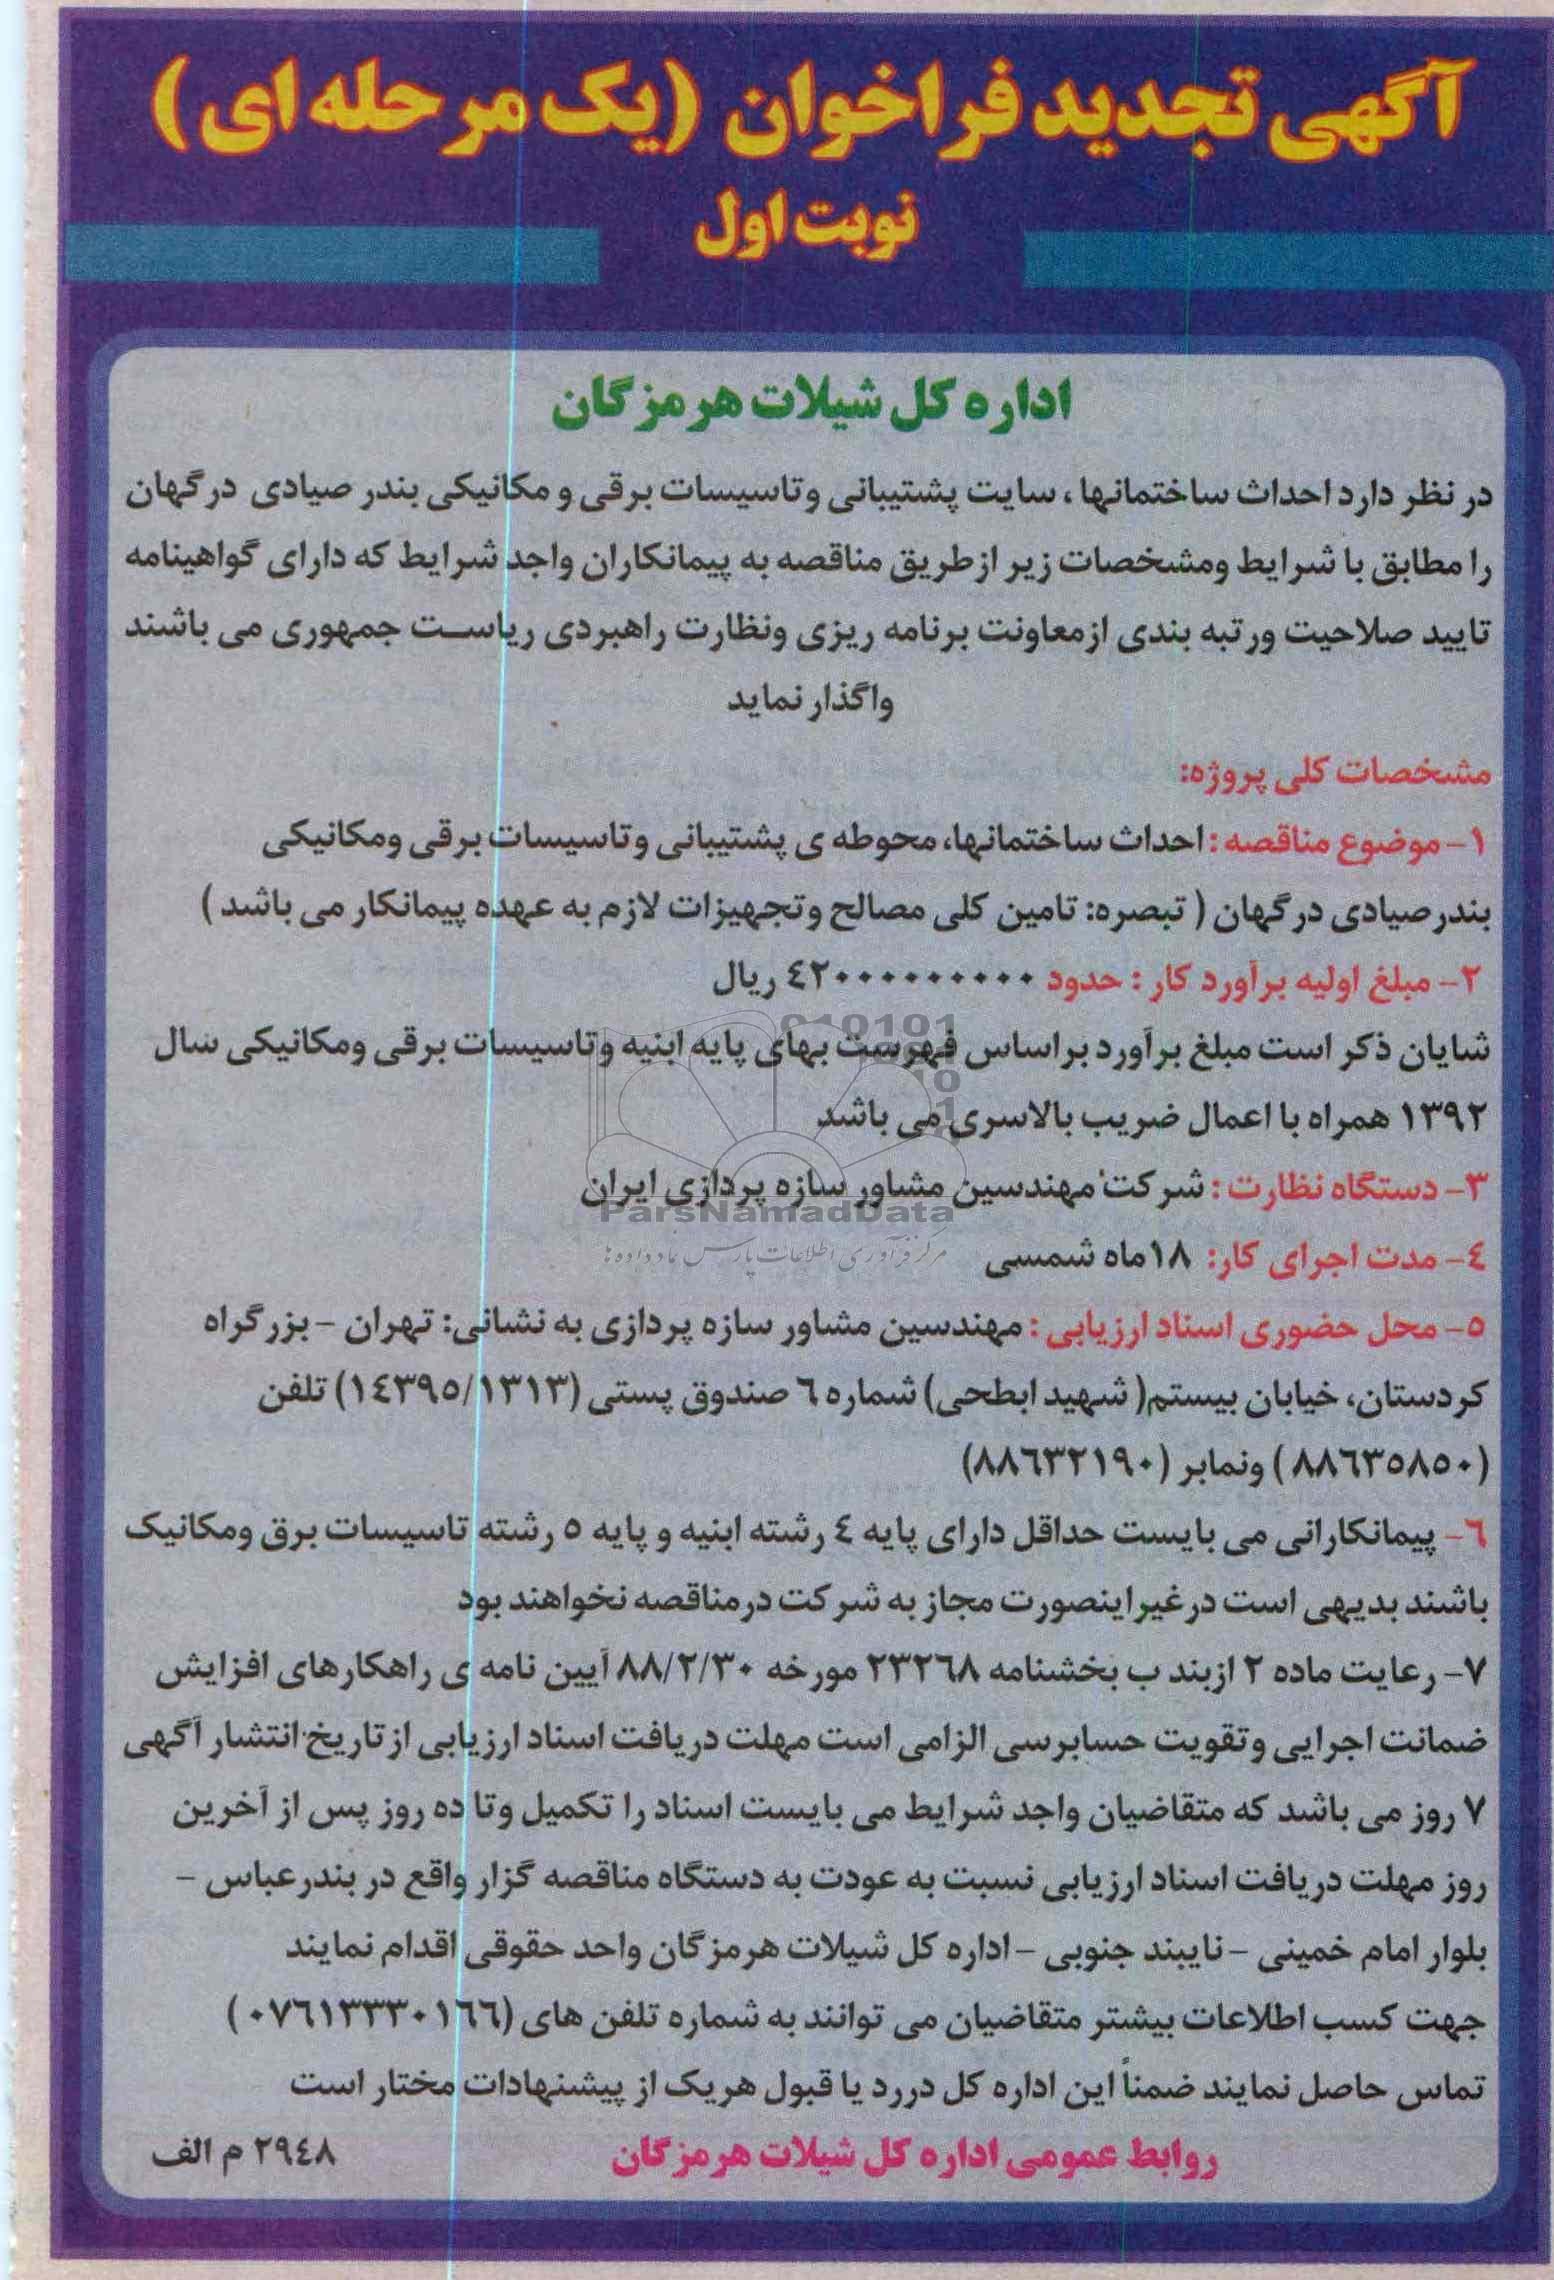 آگهی تجدید فراخوان (یک مرحله ای)
نوبت اول
اداره کل شیلات هرمزگان
در نظر دارد احداث ساختمانها ، سایت پشتیبانی وتاسیسات برقی و مکانیکی بندر صیادی درگهان
را مطابق با شرایط ومشخصات زیر ازطریق مناقصه به پیمانکاران واجد شرایط که دارای گواهینامه
تایید صلاحیت ورتبه بندی ازمعاونت برنامه ریزی ونظارت راهبردی ریاست جمهوری می باشند
واگذار نماید
مشخصات کلی پروژه:
۱- موضوع مناقصه : احداث ساختمانها، محوطه ی پشتیبانی وتاسیسات برقی ومکانیکی
بندرصیادی درگهان ( تبصره: تامین کلی مصالح وتجهیزات لازم به عهده پیمانکار می باشد )
۲- مبلغ اولیه برآورد کار : حدود ۴۲۰۰۰۰۰۰۰۰۰۰ ریال
شایان ذکر است مبلغ برآورد براساس فهرست بهای پایه ابنیه وتاسیسات برقی ومکانیکی سال
۱۳۹۲ همراه با اعمال ضریب بالاسری می باشد
۳- دستگاه نظارت : شرکت مهندسین مشاور سازه پردازی ایران
ParsNamadData
مرکز فرآوری اطلاعات پارس نماد داده ها
۴- مدت اجرای کار: ۱۸ماه شمسی
۵- محل حضوری اسناد ارزیابی : مهندسین مشاور سازه پردازی به نشانی: تهران - بزرگراه
کردستان، خیابان بیستم( شهید ابطحی) شماره ۶ صندوق پستی (۱۴۳۹۵/۱۳۱۳) تلفن
(۸۸۶۳۵۸۵۰ ) ونمابر (۸۸۶۳۲۱۹۰)
۶- پیمانکارانی می بایست حداقل دارای پایه ۴ رشته ابنیه و پایه ۵ رشته تاسیسات برق ومکانیک
باشند بدیهی است درغیراینصورت مجاز به شرکت درمناقصه نخواهند بود
۷- رعایت ماده ۲ ازبند ب بخشنامه ۲۳۲۶۸ مورخه ۸۸/۲/۳۰ آیین نامه ی راهکارهای افزایش
ضمانت اجرایی وتقویت حسابرسی الزامی است مهلت دریافت اسناد ارزیابی ازتاریخ انتشار آگهی
۷ روز می باشد که متقاضیان واجد شرایط می بایست اسناد را تکمیل وتا ده روز پس از آخرین
روز مهلت دریافت اسناد ارزیابی نسبت به عودت به دستگاه مناقصه گزار واقع در بندرعباس -
بلوار امام خمینی - نایبند جنوبی - اداره کل شیلات هرمزگان واحد حقوقی اقدام نمایند
جهت کسب اطلاعات بیشتر متقاضیان می توانند به شماره تلفن های (۰۷۶۱۳۳۳۰۱۶۶ )
تماس حاصل نمایند ضمناً این اداره کل دررد یا قبول هریک از پیشنهادات مختار است
روابط عمومی اداره کل شیلات هرمزگان
۲۹۴۸ م الف